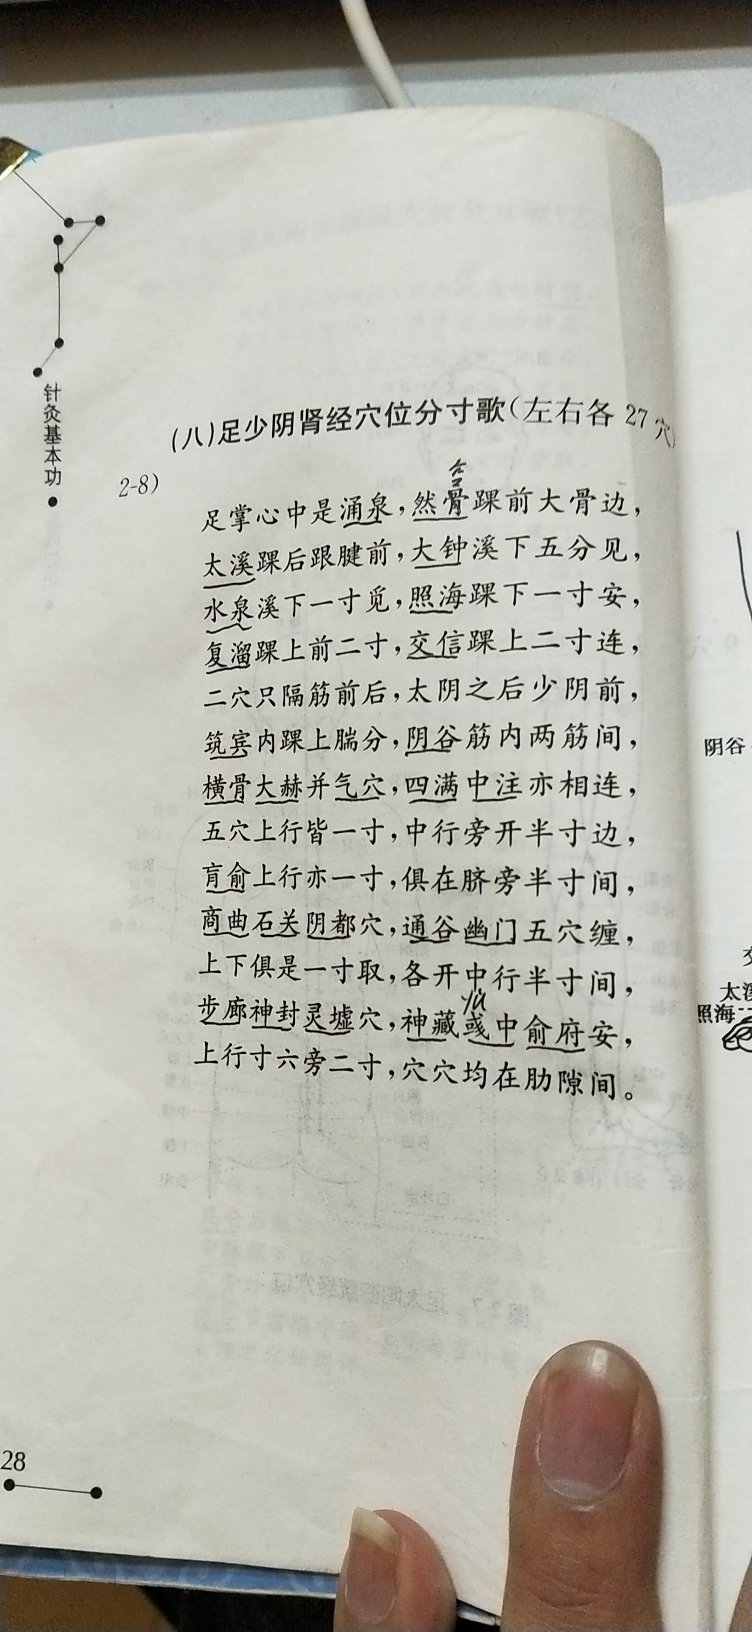 针灸基本功
(八)足少阴肾经穴位分寸歌(左右各 27 穴)
2-8)
足掌心中是涌泉,然骨踝前大骨边,
谷
太溪踝后跟腱前,大钟溪下五分见,
水泉溪下一寸觅,照海踝下一寸安,
复溜踝上前二寸,交信踝上二寸连,
二穴只隔筋前后,太阴之后少阴前,
筑宾内踝上腨分,阴谷筋内两筋间,
横骨大赫并气穴,四满中注亦相连,
五穴上行皆一寸,中行旁开半寸边,
肓俞上行亦一寸,俱在脐旁半寸间,
商曲石关阴都穴,通谷幽门五穴缠,
上下俱是一寸取,各开中行半寸间,
步廊神封灵墟穴,神藏彧中俞府安,
yu
上行寸六旁二寸,穴穴均在肋隙间。
28
阴谷
太溪
照海